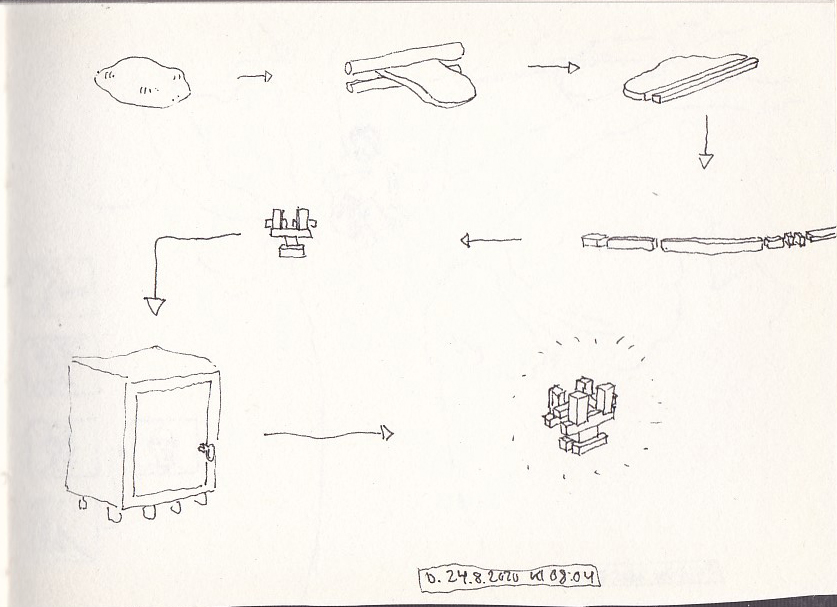 D. 24.8.2020 kl 08:04